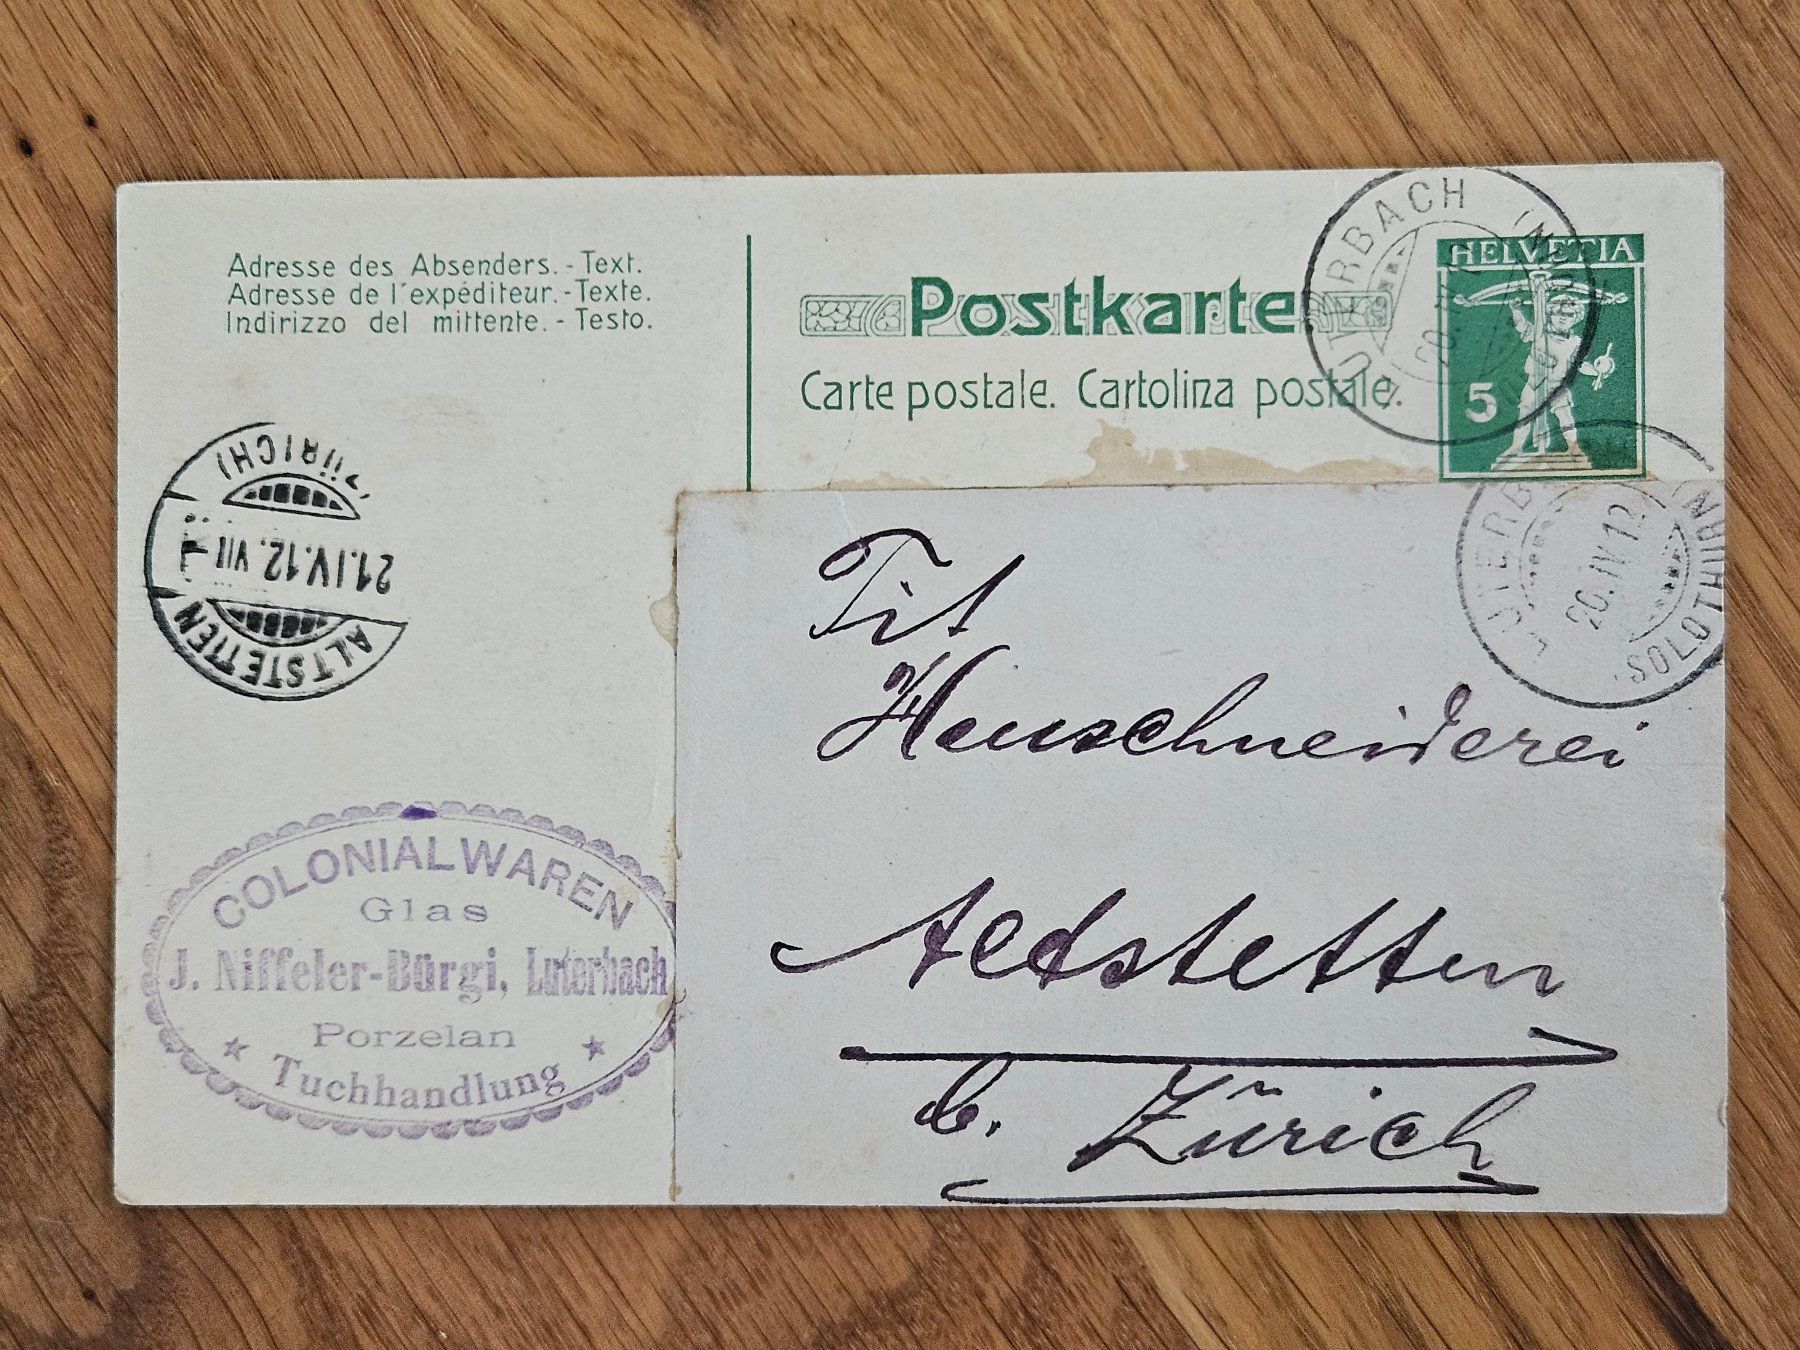 Adresse des Absenders. - Text.
Adresse de l'expéditeur. - Texte.
Indirizzo del mittente. - Testo.
Postkarte
Carte postale. Cartolina postale.
HELVETIA
5
LUTERBACH
20. IV
LUTERB
20. IV 12
(SOLOTHURN)
(ZÜRICH)
21. IV. 12. VII
ALTSTETTEN
COLONIALWAREN
Glas
J. Niffeler-Bürgi, Luterbach
Porzelan
Tuchhandlung
Tit
Heuschneiderei
Aldstetten
b. Zürich